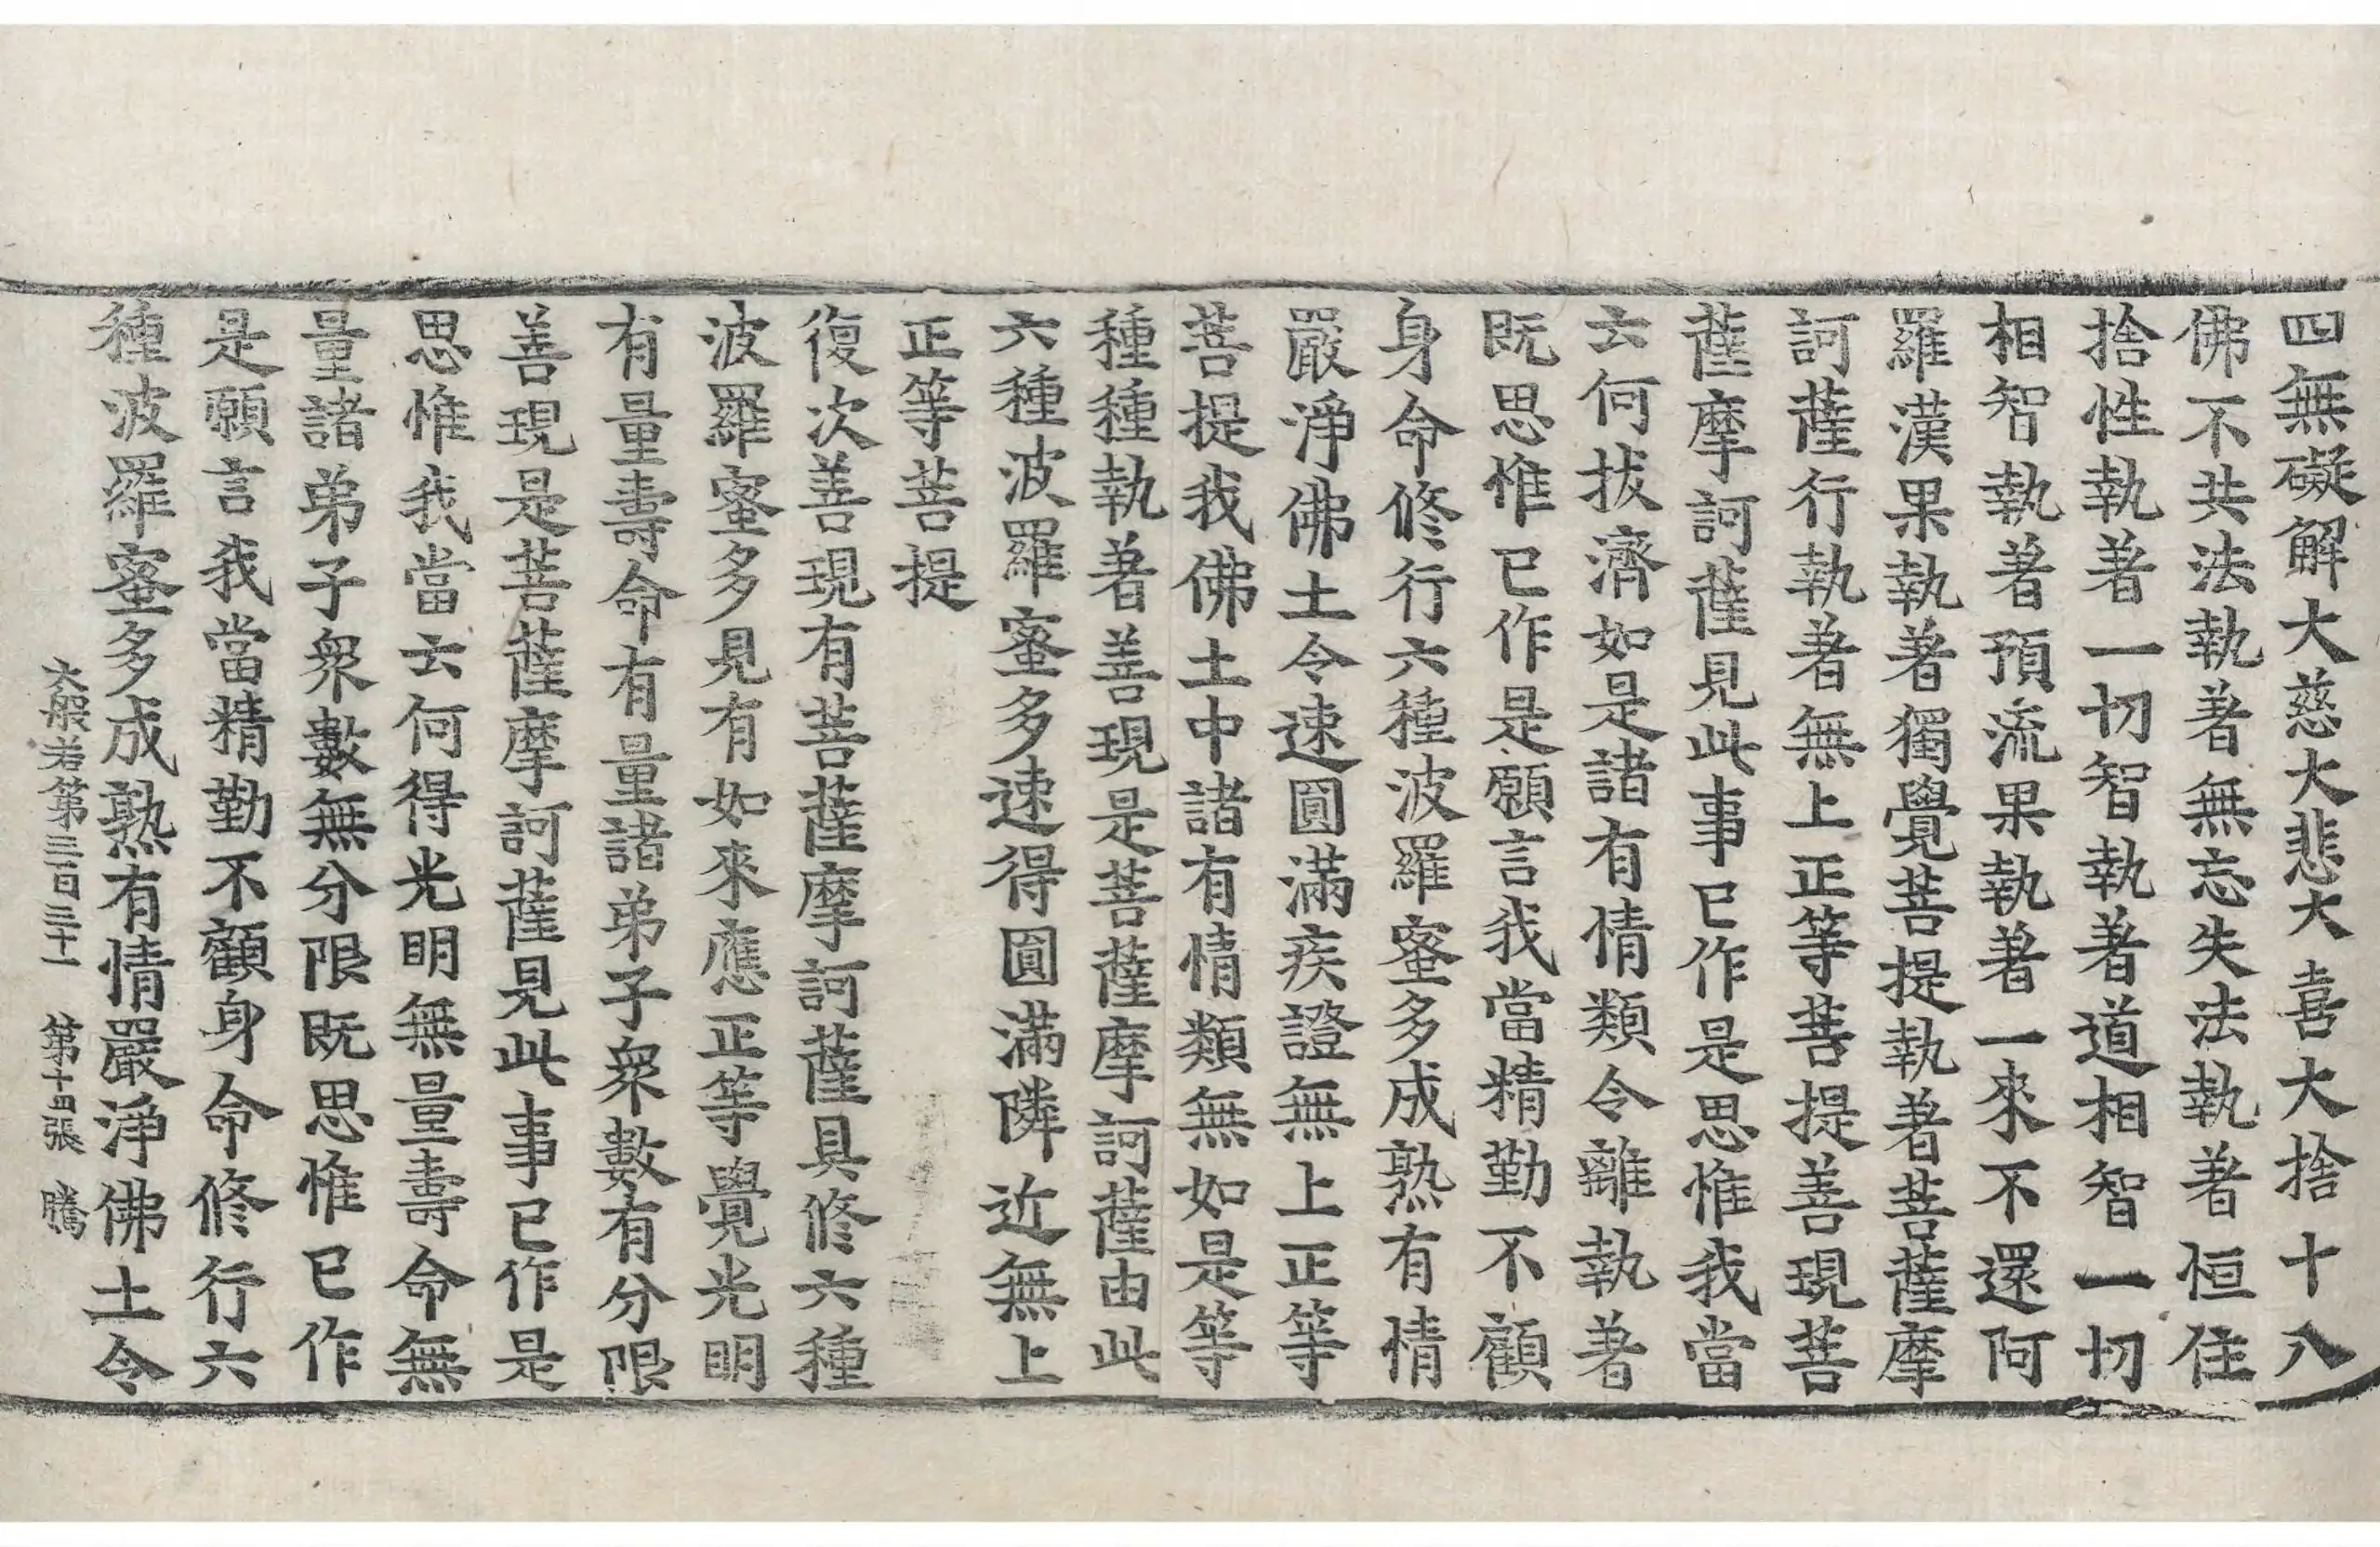 四無礙解大慈大悲大喜大捨十八
佛不共法執著無忘失法執著恒住
捨性執著一切智執著道相智一切
相智執著預流果執著一來不還阿
羅漢果執著獨覺菩提執著菩薩摩
訶薩行執著無上正等菩提善現菩
薩摩訶薩見此事已作是思惟我當
云何拔濟如是諸有情類令離執著
既思惟已作是願言我當精勤不顧
身命修行六種波羅蜜多成熟有情
嚴淨佛土令速圓滿疾證無上正等
菩提我佛土中諸有情類無如是等
種種執著善現是菩薩摩訶薩由此
六種波羅蜜多速得圓滿隣近無上
正等菩提
復次善現有菩薩摩訶薩具修六種
波羅蜜多見有如來應正等覺光明
有量壽命有量諸弟子衆數有分限
善現是菩薩摩訶薩見此事已作是
思惟我當云何得光明無量壽命無
量諸弟子衆數無分限既思惟已作
是願言我當精勤不顧身命修行六
種波羅蜜多成熟有情嚴淨佛土令
大般若第三百三十一 第十四張 騰